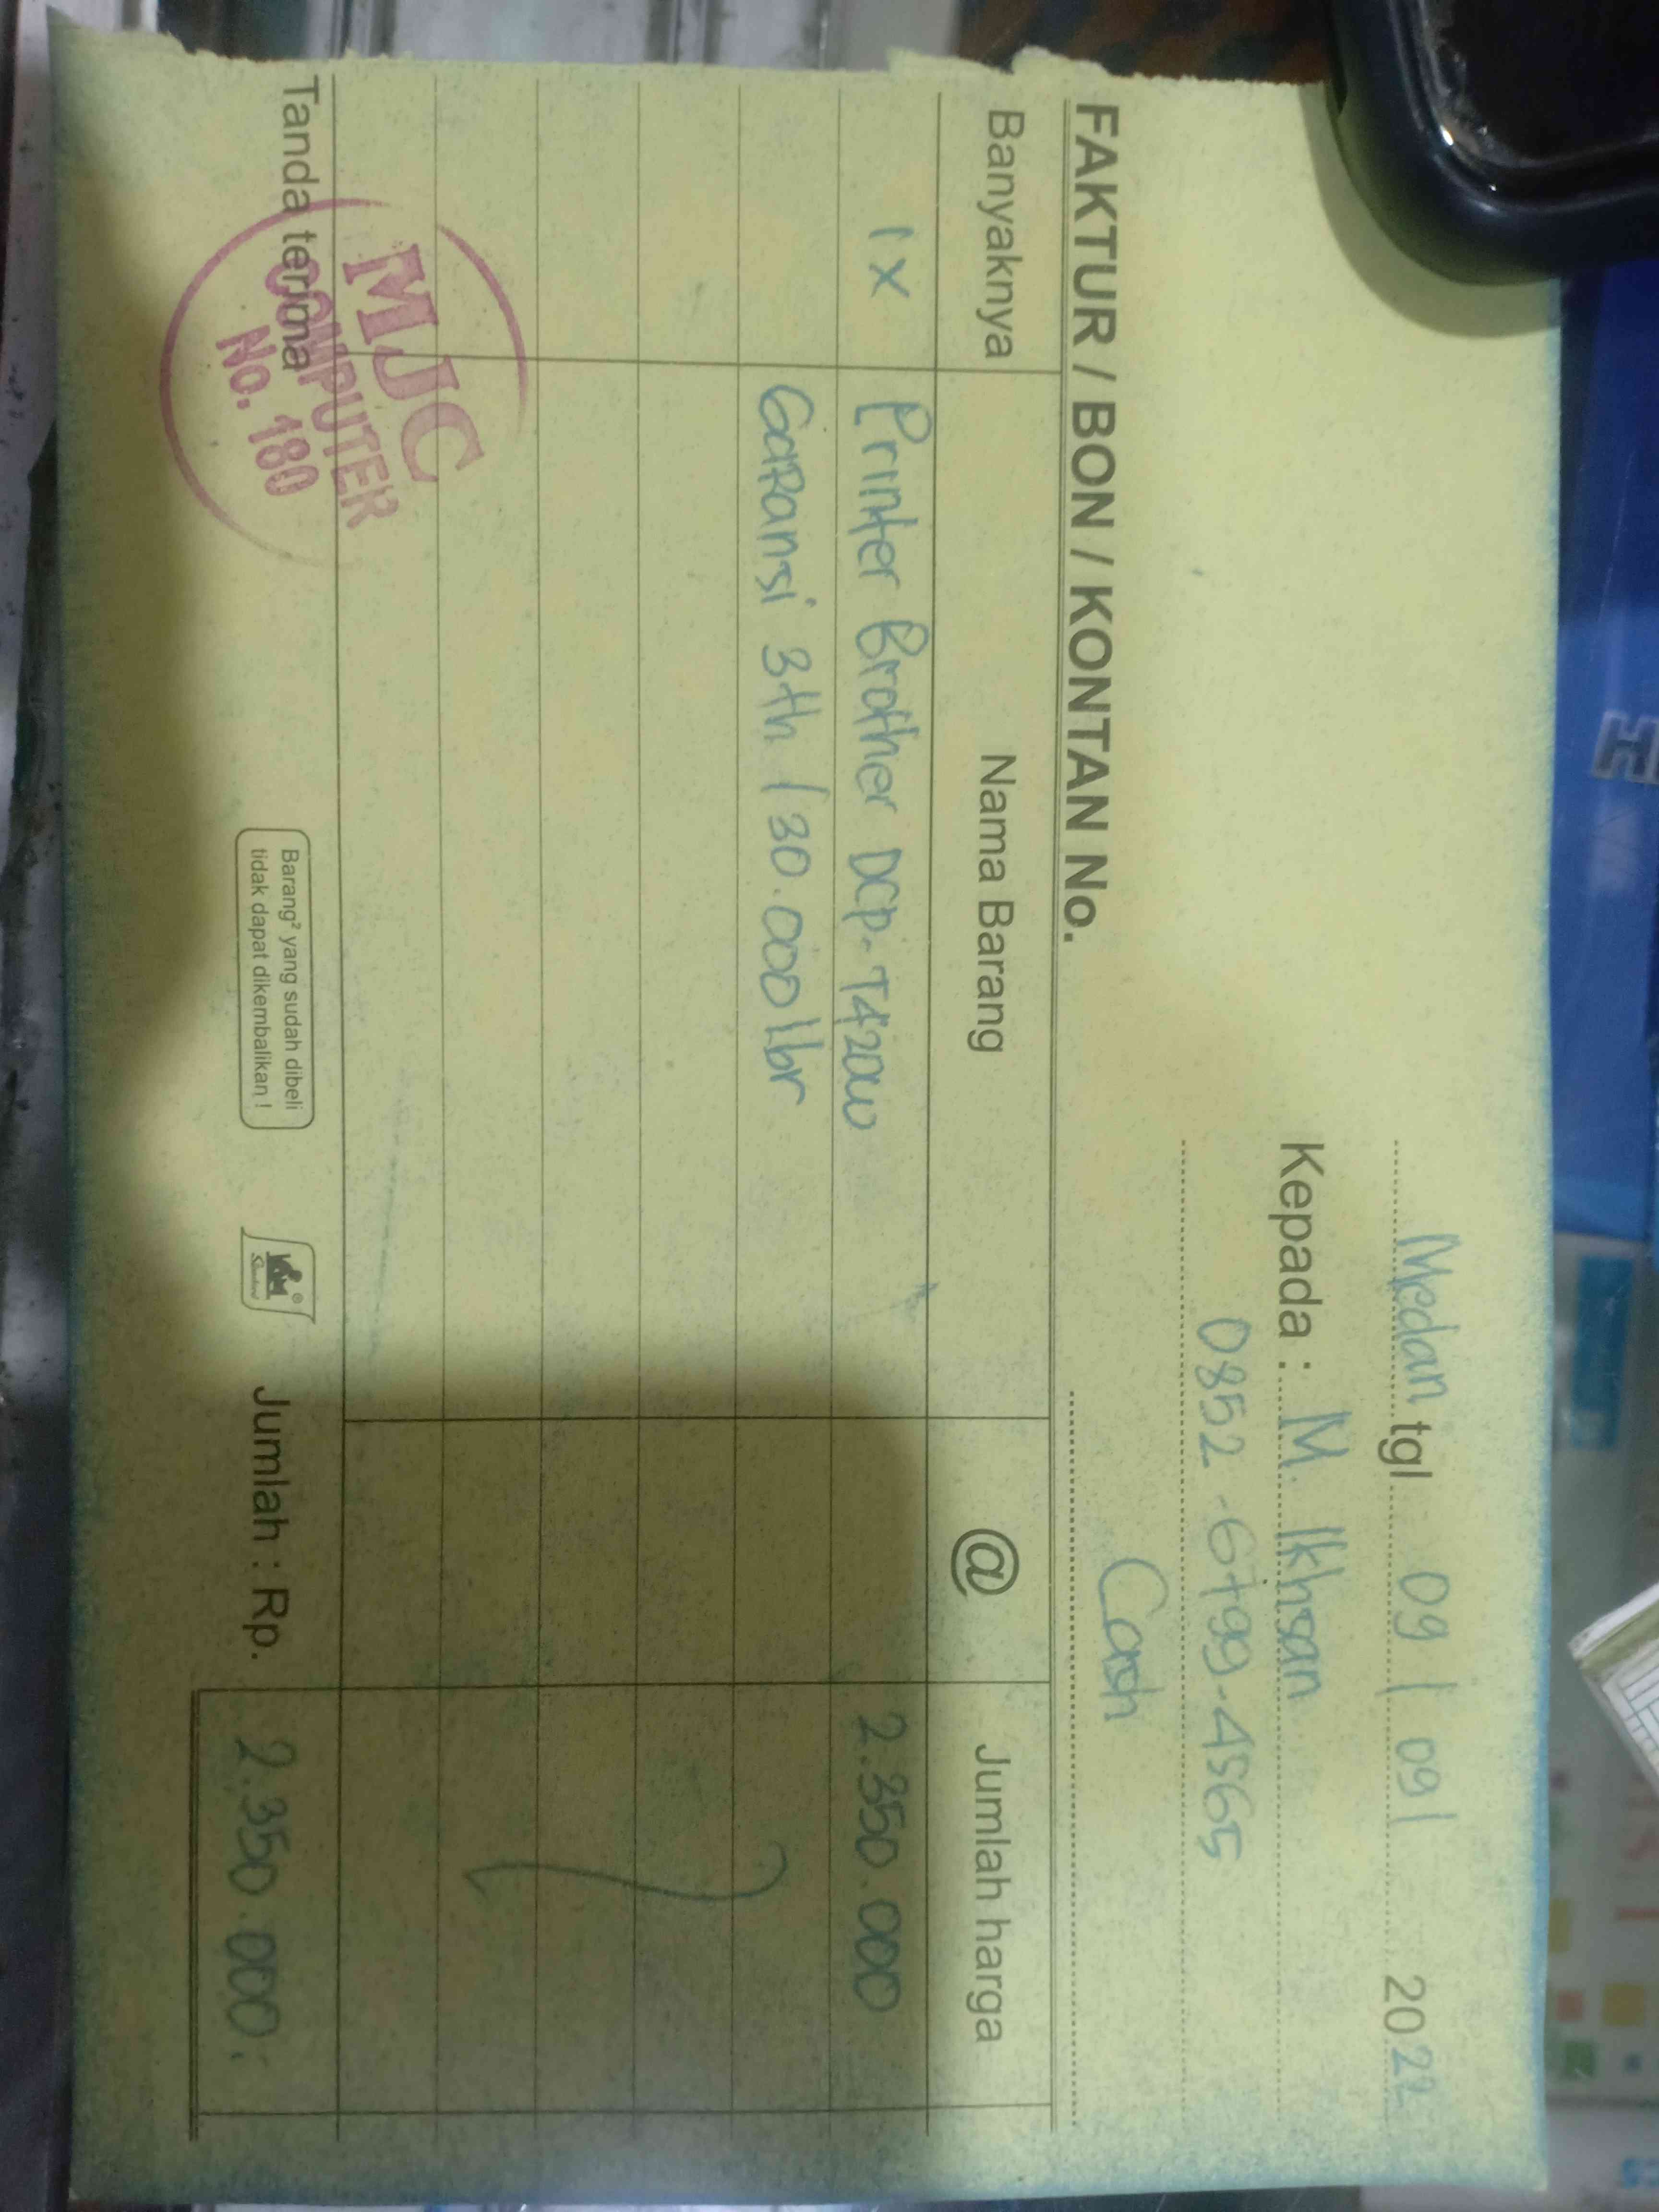 Medan tgl. 09 / 09 / 2022
Kepada : M. Ikhsan
0852-6799-4565
Cash
FAKTUR / BON / KONTAN No.
Banyaknya Nama Barang @ Jumlah harga
1 x Printer Brother DCP-T420W 2.350.000
Garansi 3th / 30.000 lbr
Tanda terima
MJC
COMPUTER
No. 180
Barang² yang sudah dibeli
tidak dapat dikembalikan !
Jumlah : Rp. 2.350.000